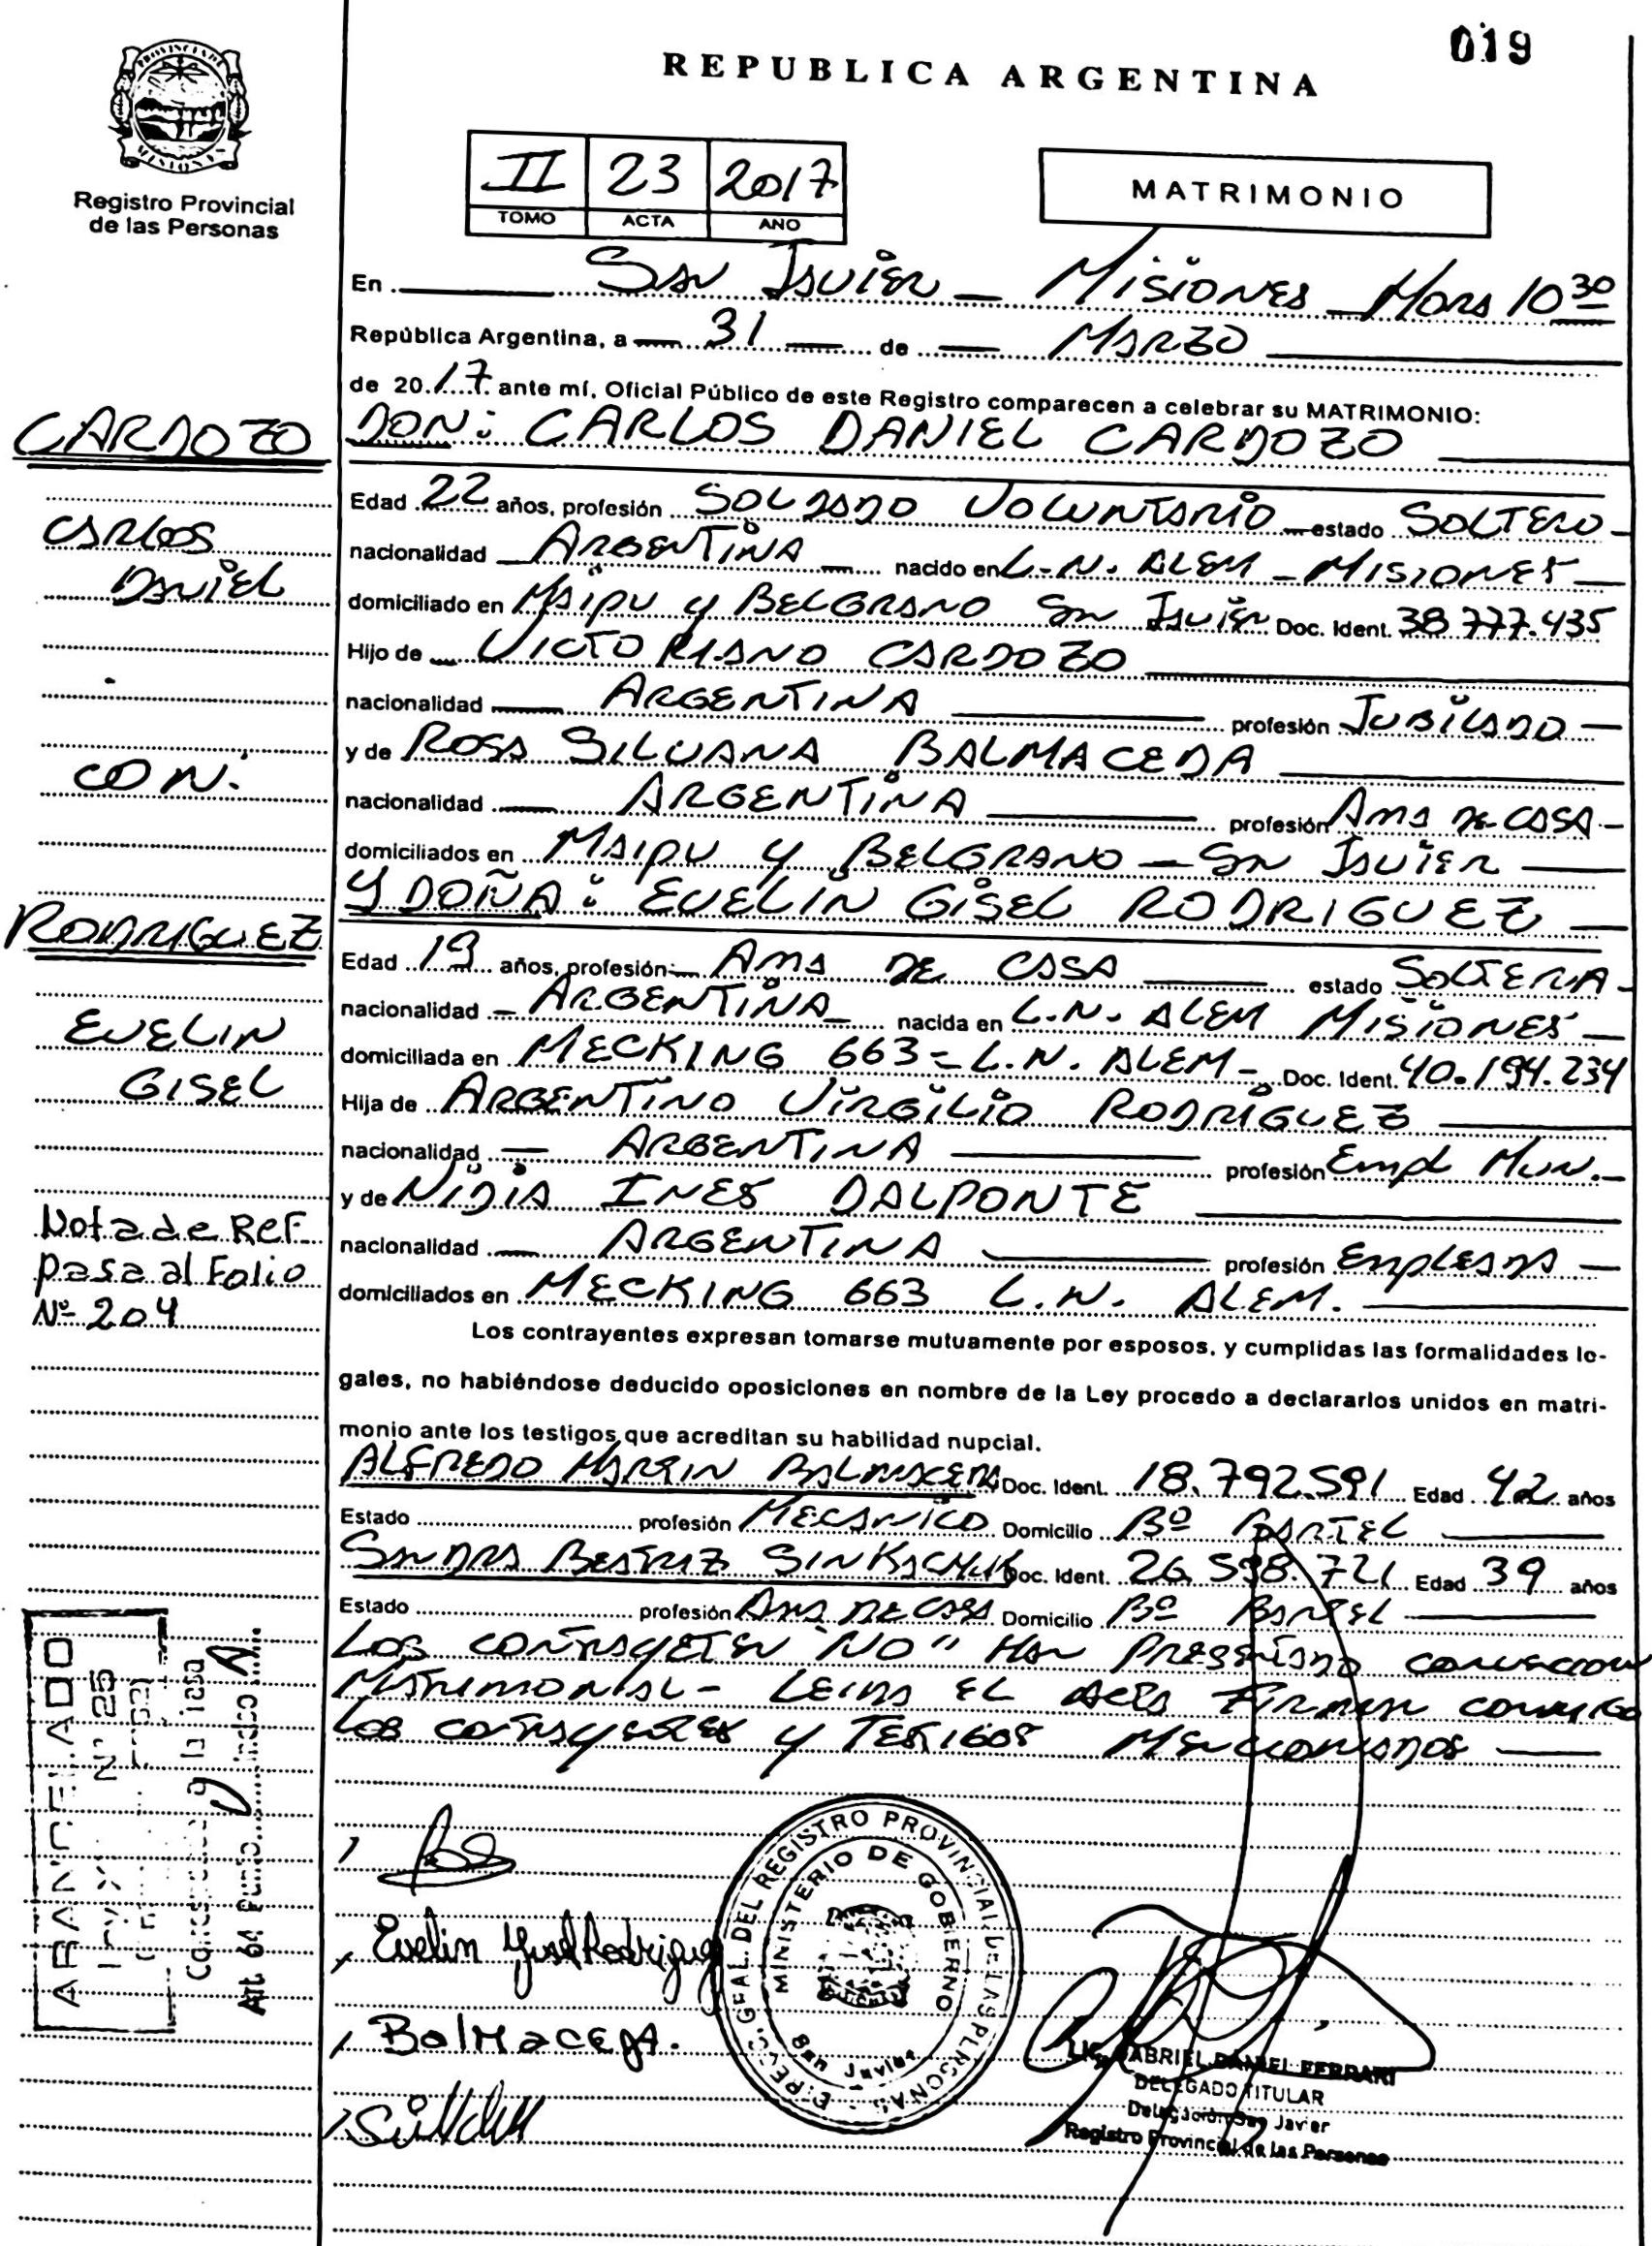 019
REPUBLICA ARGENTINA
PROVINCIA DE
MISIONES
Registro Provincial
de las Personas
II 23 2017
TOMO ACTA AÑO
MATRIMONIO
En San Javier - Misiones - Hora 10 30
República Argentina, a 31 de Marzo
de 2017 ante mí, Oficial Público de este Registro comparecen a celebrar su MATRIMONIO:
DON: CARLOS DANIEL CARDOZO
Edad 22 años, profesión SOLDADO VOLUNTARIO estado SOLTERO
nacionalidad ARGENTINA nacido en L.N. ALEM - MISIONES
domiciliado en MAIPU y BELGRANO San Javier Doc. Ident. 38.777.435
Hijo de VICTORIANO CARDOZO
nacionalidad ARGENTINA profesión JUBILADO
y de ROSA SILVANA BALMACEDA
nacionalidad ARGENTINA profesión AMA DE CASA
domiciliados en MAIPU y BELGRANO - San JAVIER
Y DOÑA: EVELIN GISEL RODRIGUEZ
Edad 19 años, profesión AMA DE CASA estado SOLTERA
nacionalidad - ARGENTINA nacida en L.N. ALEM MISIONES
domiciliada en MECKING 663 - L.N. ALEM - Doc. Ident. 40.194.234
Hija de ARGENTINO VIRGILIO RODRIGUEZ
nacionalidad ARGENTINA profesión Empl Mun.
y de NIDIA INES DALPONTE
nacionalidad ARGENTINA profesión Empleada
domiciliados en MECKING 663 L.N. ALEM.
Los contrayentes expresan tomarse mutuamente por esposos, y cumplidas las formalidades le-
gales, no habiéndose deducido oposiciones en nombre de la Ley procedo a declararlos unidos en matri-
monio ante los testigos que acreditan su habilidad nupcial.
ALFREDO MARTIN BALMACEDA Doc. Ident. 18.792.591 Edad 42 años
Estado profesión MECANICO Domicilio Bº BARTEL
SANDRA BEATRIZ SINKACHUK Doc. Ident. 26.598.721 Edad 39 años
Estado profesión AMA DE CASA Domicilio Bº BARTEL
Los "NO" Han PRESENTADO
MATRIMONIAL - LEIDA EL ACTA FIRMAN CONMIGO
Los y TESTIGOS MENCIONADOS
CARDOZO
CARLOS
DANIEL
CON:
RODRIGUEZ
EVELIN
GISEL
Nota de Ref.
pasa al Folio
Nº 204
ARANCELADO
Nº 25
a la tasa
Art. 64 Punto
Evelin Gisel Rodriguez
Balmaceda.
DEL REGISTRO PROVINCIAL DE LAS PERSONAS
MINISTERIO DE GOBIERNO
San Javier
LIC. GABRIEL DANIEL FERRARI
DELEGADO TITULAR
Delegación San Javier
Registro Provincial de las Personas